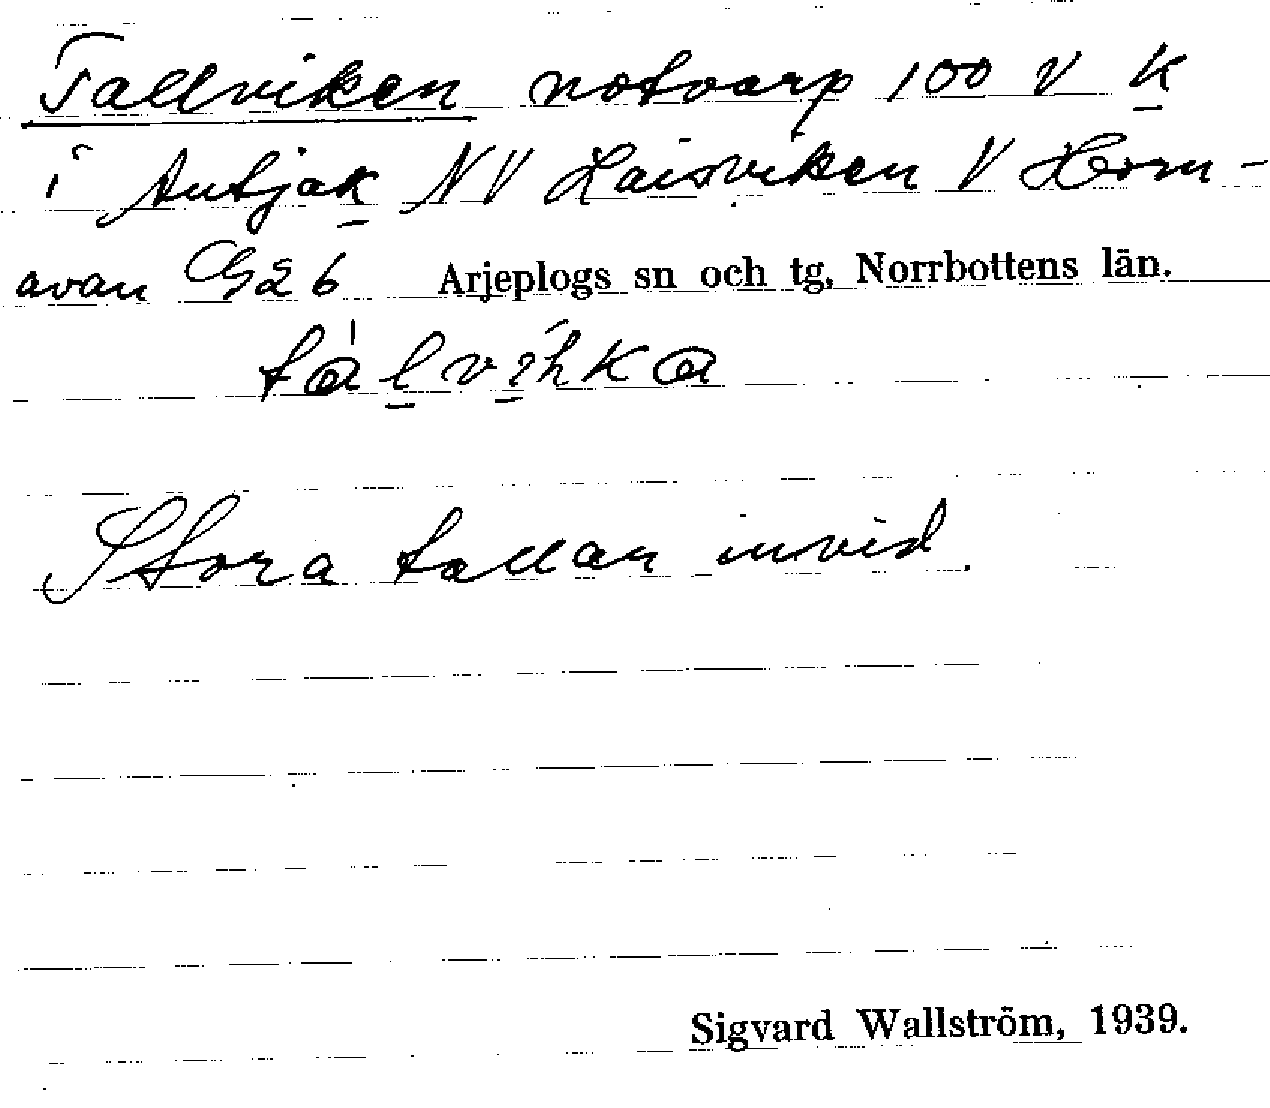 Tallviken notvarp 100 V K
i Autjak NV Laisviken V Horn-
avan Gä 6 Arjeplogs sn och tg, Norrbottens län.
Stora tallar invid.
Sigvard Wallström, 1939.